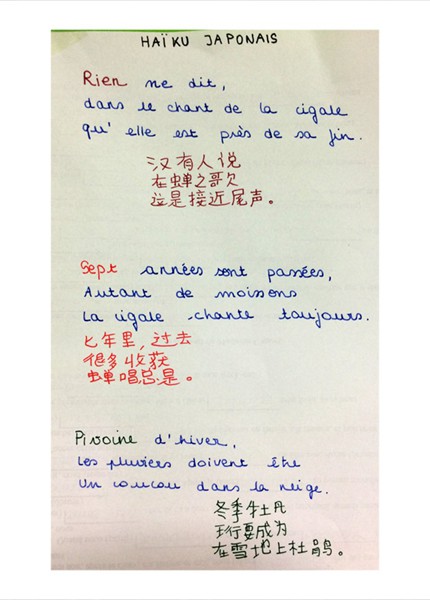 HAÏKU JAPONAIS
Rien ne dit,
dans le chant de la cigale
qu'elle est près de sa fin.
汉有人说
在蝉之哥欠
这是接近尾声。
Sept années sont passées,
Autant de moissons
La cigale chante toujours.
七年里，过去
很多收获
蝉唱总是。
Pivoine d'hiver,
Les pluviers doivent être
Un coucou dans la neige.
冬季牡丹
珩要成为
在雪地上杜鹃。